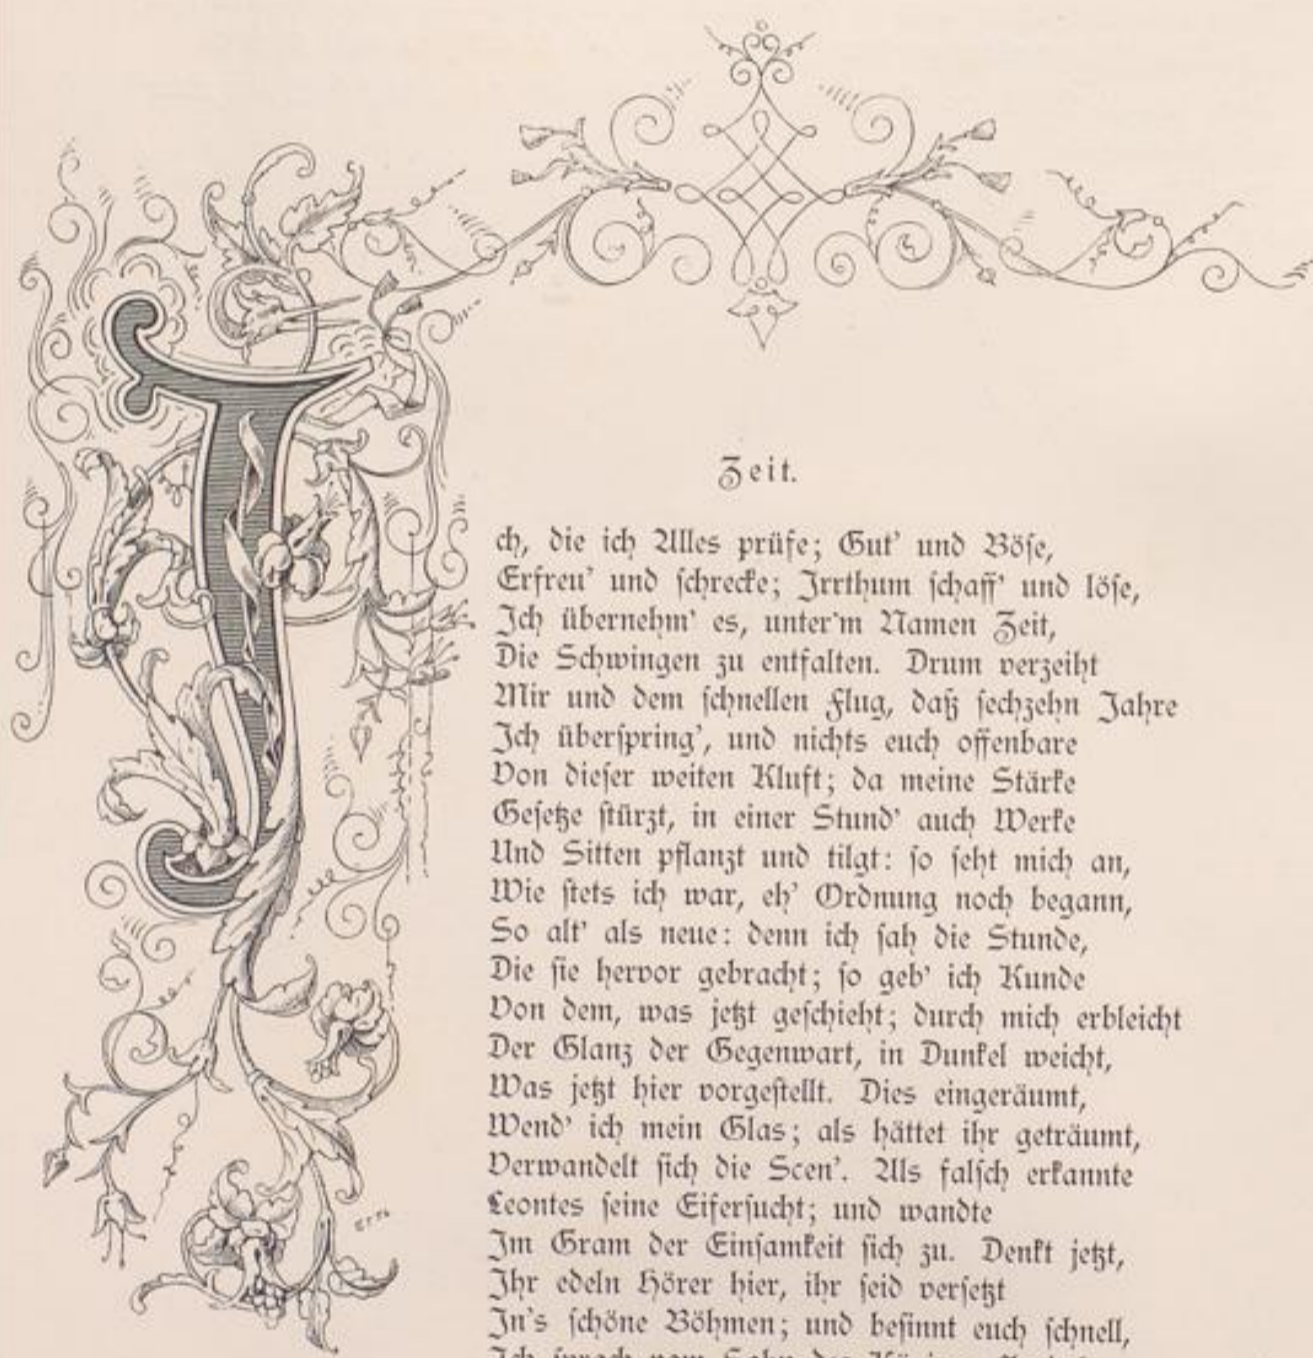 Zeit.
Ich, die ich Alles prüfe; Gut' und Böse,
Erfreu' und schrecke; Irrthum schaff' und löse,
Ich übernehm' es, unter'm Namen Zeit,
Die Schwingen zu entfalten. Drum verzeiht
Mir und dem schnellen Flug, daß sechzehn Jahre
Ich überspring', und nichts euch offenbare
Von dieser weiten Kluft; da meine Stärke
Gesetze stürzt, in einer Stund' auch Werke
Und Sitten pflanzt und tilgt: so seht mich an,
Wie stets ich war, eh' Ordnung noch begann,
So alt' als neue: denn ich sah die Stunde,
Die sie hervor gebracht; so geb' ich Kunde
Von dem, was jetzt geschieht; durch mich erbleicht
Der Glanz der Gegenwart, in Dunkel weicht,
Was jetzt hier vorgestellt. Dies eingeräumt,
Wend' ich mein Glas; als hättet ihr geträumt,
Verwandelt sich die Scen'. Als falsch erkannte
Leontes seine Eifersucht; und wandte
Im Gram der Einsamkeit sich zu. Denkt jetzt,
Ihr edeln Hörer hier, ihr seid versetzt
In's schöne Böhmen; und besinnt euch schnell,